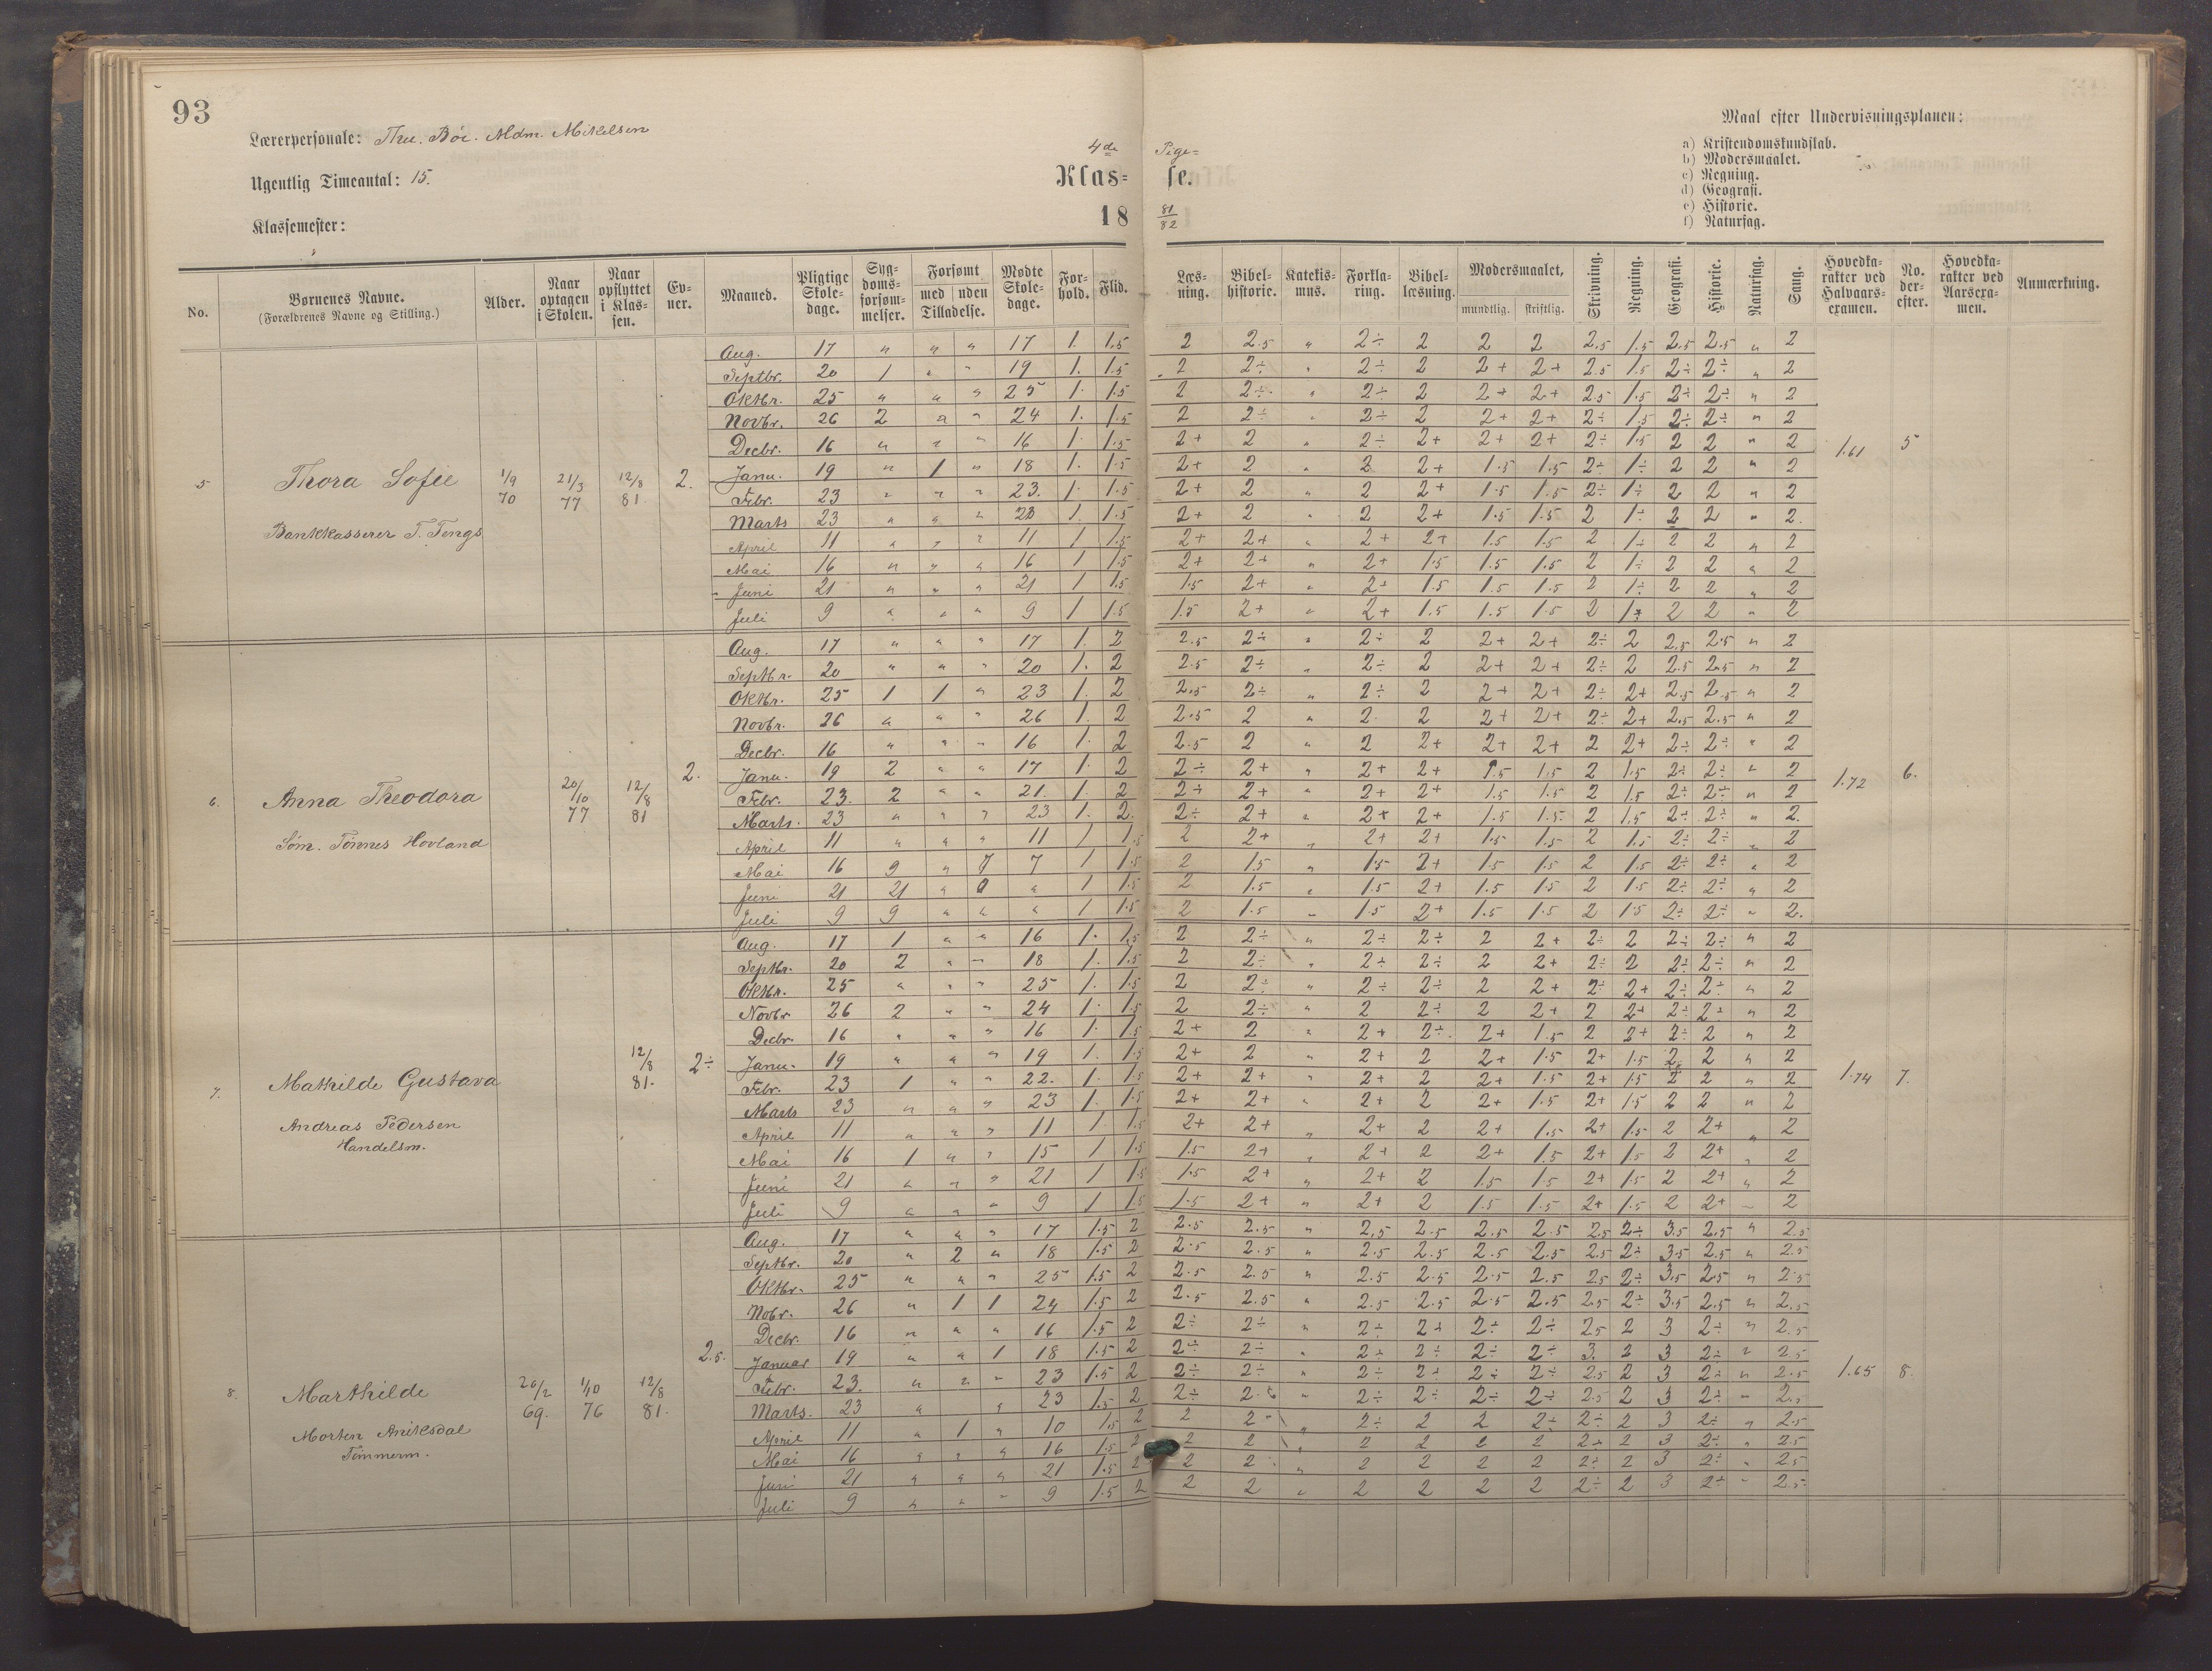 93
Lærerpersonale: Thu. Bøe. Mdm. Mikelsen
Ugentlig Timeantal: 15.
Klassemester:
4de Pige=
Klas= se.
18 81/82
Maal efter Undervisningsplanen:
a) Kristendomskundskab.
b) Modersmaalet.
c) Regning.
d) Geografi.
e) Historie.
f) Naturfag.
No. | Børnenes Navne. (Forældrenes Navne og Stilling.) | Alder. | Naar optagen i Skolen. | Naar opflyttet i Klassen. | Evner. | Maaned. | Pligtige Skoledage. | Sygdomsforsømmelser. | Forsømt med / uden Tilladelse. | Mødte Skoledage. | Forhold. | Flid. | Læsning. | Bibelhistorie. | Katekismus. | Forklaring. | Bibellæsning. | Modersmaalet, mundtlig. | skriftlig. | Skrivning. | Regning. | Geografi. | Historie. | Naturfag. | Sang. | Hovedkarakter ved Halvaarsexamen. | No. derefter. | Hovedkarakter ved Aarsexamen. | Anmærkning.
5 Thora Sofie 1/9 70 21/3 77 12/8 81. 2. 1.61 5
Bankkasserer T. Tengs
Aug. 17 " " " 17 1. 1.5 2 2.5 " 2÷ 2 2 2 2.5 1.5 2.5 2.5 " 2
Septbr. 20 1 " " 19 1. 1.5 2 2÷ " 2÷ 2 2+ 2+ 2.5 1.5 2÷ 2÷ " 2
Oktbr. 25 " " " 25 1. 1.5 2 2÷ " 2÷ 2 2+ 2+ 2.5 1.5 2÷ 2÷ " 2
Novbr. 26 2 " " 24 1. 1.5 2 2÷ " 2÷ 2 2+ 2+ 2÷ 1.5 2÷ 2÷ " 2
Decbr. 16 " " " 16 1. 1.5 2+ 2 " 2÷ 2+ 2+ 2+ 2÷ 1.5 2 2 " 2
Janu. 19 " 1 " 18 1. 1.5 2+ 2 " 2 2+ 1.5 1.5 2÷ 1÷ 2 2 " 2
Febr. 23 " " " 23. 1. 1.5 2+ 2 " 2 2+ 1.5 1.5 2÷ 1÷ 2 2 " 2
Marts 23 " " " 23 1. 1.5 2+ 2 " 2 2+ 1.5 1.5 2 1÷ 2 2 " 2.
April 11 " " " 11 1 1.5 2+ 2+ " 2+ 2+ 1.5 1.5 2 1÷ 2 2 " 2
Mai 16 " " " 16 1 1.5 2+ 2+ " 2+ 1.5 1.5 1.5 2 1÷ 2 2 " 2
Juni 21 " " " 21 1 1.5 1.5 2+ " 2+ 1.5 1.5 1.5 2 1÷ 2 2 " 2
Juli 9 " " " 9 1 1.5 1.5 2+ " 2+ 1.5 1.5 1.5 2 1÷ 2 2 " 2
6. Anna Theodora 20/10 77 12/8 81 2. 1.72 6.
Søm. Tønnes Hovland
Aug. 17 " " " 17 1. 2 2.5 2÷ " 2÷ 2 2+ 2+ 2÷ 2 2.5 2.5 " 2
Septbr. 20 " " " 20 1. 2 2.5 2÷ " 2÷ 2 2+ 2+ 2÷ 2 2.5 2.5 " 2
Oktbr. 25 1 1 " 23 1. 2 2.5 2÷ " 2÷ 2 2+ 2+ 2÷ 2+ 2.5 2.5 " 2
Novbr. 26 " " " 26 1. 2 2.5 2 " 2. 2 2+ 2+ 2÷ 2+ 2.5 2.5 " 2
Decbr. 16 " " " 16 1. 2 2.5 2 " 2 2+ 2+ 2+ 2 2+ 2÷ 2÷ " 2
Janu. 19 2 " " 17 1. 2 2÷ 2+ " 2+ 2+ 1.5 1.5 2 1.5 2÷ 2÷ " 2
Febr. 23. 2 " " 21. 1. 2 2÷ 2+ " 2+ 2+ 1.5 1.5 2 1.5 2÷ 2÷ " 2
Marts. 23 " " " 23 1. 2. 2÷ 2+ " 2+ 2+ 1.5 1.5 2 1.5 2÷ 2÷ " 2.
April 11 " " " 11 1 1.5 2 2+ " 2+ 2+ 1.5 1.5 2 1.5 2÷ 2÷ " 2
Mai 16 9 " 7 7 1 1.5 2 1.5 " 1.5 2+ 1.5 1.5 2 1.5 2÷ 2÷ " 2
Juni 21 21 " " 1 1.5 2 1.5 " 1.5 2+ 1.5 1.5 2 1.5 2÷ 2÷ " 2
Juli 9 9 " " " 1 1.5 2 1.5 " 1.5 2+ 1.5 1.5 2 1.5 2÷ 2÷ " 2.
7. Mathilde Gustava 12/8 81. 2÷ 1.74 7.
Andreas Pedersen
Handelsm.
Aug. 17 1 " " 16 1. 1.5 2 2÷ " 2÷ 2÷ 2 2+ 2÷ 2 2÷ 2÷ " 2
Septbr. 20 2 " " 18 1. 1.5 2 2÷ " 2÷ 2÷ 2 2+ 2÷ 2 2÷ 2÷ " 2
Oktbr. 25 " " " 25 1. 1.5 2 2÷ " 2÷ 2÷ 2 2+ 2÷ 2+ 2÷ 2÷ " 2
Novbr 26 2 " " 24 1. 1.5 2 2÷ " 2 2÷ 2 2+ 2 2+ 2÷ 2÷ " 2
Decbr. 16 " " " 16 1. 1.5 2+ 2 " 2+ 2÷ 2+ 1.5 2 2+ 2÷ 2 " 2
Janu. 19 " " " 19 1. 1.5 2+ 2 " 2+ 2 2+ 1.5 2+ 1.5 2 2 " 2
Febr. 23 1 " " 22. 1. 1.5 2+ 2+ " 2+ 2 2+ 1.5 2+ 1.5 2 2 " 2
Marts 23 " " " 23 1. 1.5 2+ 2+ " 2+ 2 2+ 1.5 2+ 1.5 2 2 " 2
April 11 " " " 11 1 1.5 2+ 2+ " 2+ 2 2+ 1.5 2+ 1.5 2 2+ " 2
Mai 16 1 " " 15 1 1.5 1.5 2+ " 2+ 2 2+ 1.5 2+ 1.5 2 2+ " 2
Juni 21 " " " 21 1 1.5 1.5 2+ " 2+ 2 1.5 1.5 2+ 1.5 2 2+ " 2
Juli 9 " " " 9 1 1.5 1.5 2+ " 2+ 2 1.5 1.5 2+ 1.5 2 2+ " 2
8. Marthilde 26/2 69. 1/10 76 12/8 81. 2.5. 1.65 8.
Morten Aniksdal
Tømmerm.
Aug. 17 " " " 17 1.5 2 2.5 2.5 " 2.5 2.5 2.5 2.5 2.5 2÷ 3.5 2.5 " 2.5
Septbr. 20 " 2 " 18 1.5 2 2.5 2.5 " 2.5 2.5 2.5 2.5 2.5 2÷ 3.5 2.5 " 2.5
Oktbr. 25 " " " 25 1.5 2 2.5 2.5 " 2.5 2.5 2.5 2.5 2.5 2÷ 3.5 2.5 " 2.5
Nobr. 26 " 1 1 24 1.5 2 2.5 2.5 " 2.5 2.5 2.5 2.5 2.5 2÷ 3.5 2.5 " 2.5
Decbr. 16 " " " 16 1.5 2 2÷ 2÷ " 2÷ 2÷ 2÷ 2÷ 2.5 2 3 2÷ " 2.5
Januar 19 " " 1 18 1.5 2 2÷ 2÷ " 2÷ 2÷ 2÷ 2÷ 3. 2 3 2÷ " 2.5
Febr. 23. " " " 23 1.5 2 2÷ 2÷ " 2÷ 2÷ 2÷ 2÷ 2.5 2 3 2÷ " 2.5
Marts. 23 " " 23 1.5 2 2÷ " 2÷ 2÷ 2÷ 2÷ 2.5 2 3 2÷ " 2.5
April 11 " 1 " 10 1.5 2 2 2 " 2÷ 2 2 2÷ 2÷ 2 3 2÷ " 2.5
Mai 16 " " " 16 1.5 2 2 2 " 2 2 2 2 2÷ 2 3 2÷ " 2.5
Juni 21 " " " 21 1.5 2 2 2 " 2 2 2 2 2÷ 2 3 2÷ " 2.5
Juli 9 " " " 9 1.5 2 2 2 " 2 2 2 2 2÷ 2 3 2÷ " 2.5